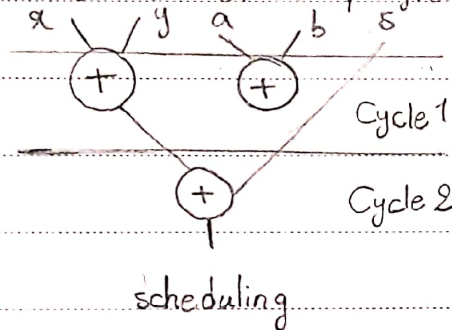 x y a b 5
+ +
Cycle 1
+
Cycle 2
scheduling